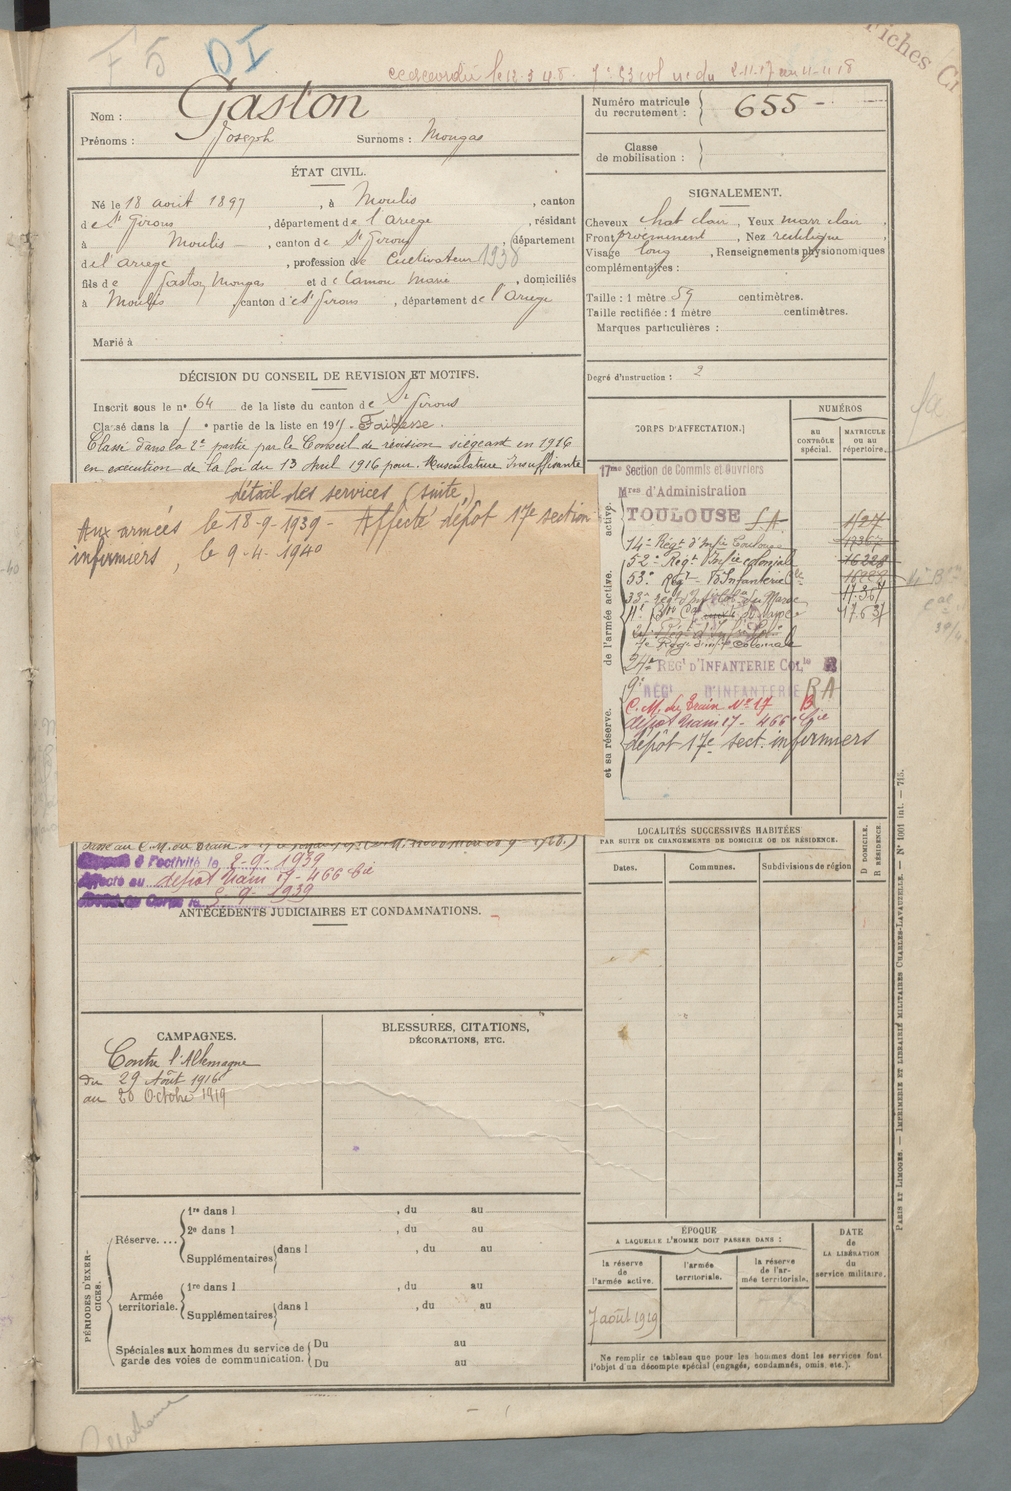 F 5 DI
Fiches Ci
le 12.3.48. 53 col du 2-11-17 au 11-11-18
Nom : Gaston
Prénoms : Joseph Surnoms : Mongas
Numéro matricule
du recrutement : 655 -
Classe
de mobilisation :
ÉTAT CIVIL.
Né le 18 août 1897, à Moulis, canton
de St Girons, département de l'Ariege, résidant
à Moulis, canton de St Girons, département
de l'Ariege, profession de Cultivateur 1938
fils de Gaston Mongas et de Camon Marie, domiciliés
à Moulis canton de St Girons, département de l'Ariege
Marié à
SIGNALEMENT.
Cheveux chat clair, Yeux marr clair,
Front proeminent, Nez rectiligne,
Visage long, Renseignements physionomiques
complémentaires :
Taille : 1 mètre 59 centimètres.
Taille rectifiée : 1 mètre centimètres.
Marques particulières :
Degré d'instruction : 2
DÉCISION DU CONSEIL DE REVISION ET MOTIFS.
Inscrit sous le n° 64 de la liste du canton de St Girons
Classé dans la 1e partie de la liste en 191 - Faiblesse.
Classé dans la 2e partie par le Conseil de révision siégeant en 1916
en exécution de la loi du 13 Avril 1916 pour Musculature Insuffisante
détail des services (suite)
Aux armées le 18-9-1939 - Affecté dépôt 17e section
infirmiers, le 9-4-1940
à l'activité le 2-9-1939
Affecté au dépôt train 17 - 466 Cie
au Corps le 3-9-1939
CORPS D'AFFECTATION.
NUMÉROS
AU
CONTRÔLE
spécial.
MATRICULE
OU AU
répertoire.
active.
de l'armée active.
et sa réserve.
17me Section de Commis et Ouvriers
Mres d'Administration
TOULOUSE S.A
14e Régt d'Infie Toulouse
52e Régt d'Infie coloniale 16228
53e Régt d'Infanterie Cle
33e régt d'Inf Col. du Maroc 17.367
11e Bon 17.637
7e Rég d'inf coloniale
24e REGT D'INFANTERIE COLle R
9e RÉGt D'INFANTERIE RA
C.M. du Train N° 17 B
dépôt train 17 - 466e Cie
dépôt 17e sect. infirmiers
LOCALITÉS SUCCESSIVES HABITÉES
PAR SUITE DE CHANGEMENTS DE DOMICILE OU DE RÉSIDENCE.
Dates.
Communes.
Subdivisions de région
D DOMICILE.
R RÉSIDENCE.
ANTÉCÉDENTS JUDICIAIRES ET CONDAMNATIONS.
CAMPAGNES.
Contre l'Allemagne
du 29 Août 1916
au 20 Octobre 1919
BLESSURES, CITATIONS,
DÉCORATIONS, ETC.
PÉRIODES D'EXERCICES.
Réserve....
1re dans l , du au
2e dans l , du au
Supplémentaires dans l , du au
Armée
territoriale.
1re dans l , du au
Supplémentaires dans l , du au
Spéciales aux hommes du service de
garde des voies de communication.
Du au
Du au
ÉPOQUE
A LAQUELLE L'HOMME DOIT PASSER DANS :
la réserve
de
l'armée active.
l'armée
territoriale.
la réserve
de l'ar-
mée territoriale.
DATE
de
LA LIBÉRATION
du
service militaire.
7 août 1919
Ne remplir ce tableau que pour les hommes dont les services font
l'objet d'un décompte spécial (engagés, condamnés, omis, etc.).
PARIS ET LIMOGES. — IMPRIMERIE ET LIBRAIRIE MILITAIRES CHARLES-LAVAUZELLE. — N° 1001 int. — 715.